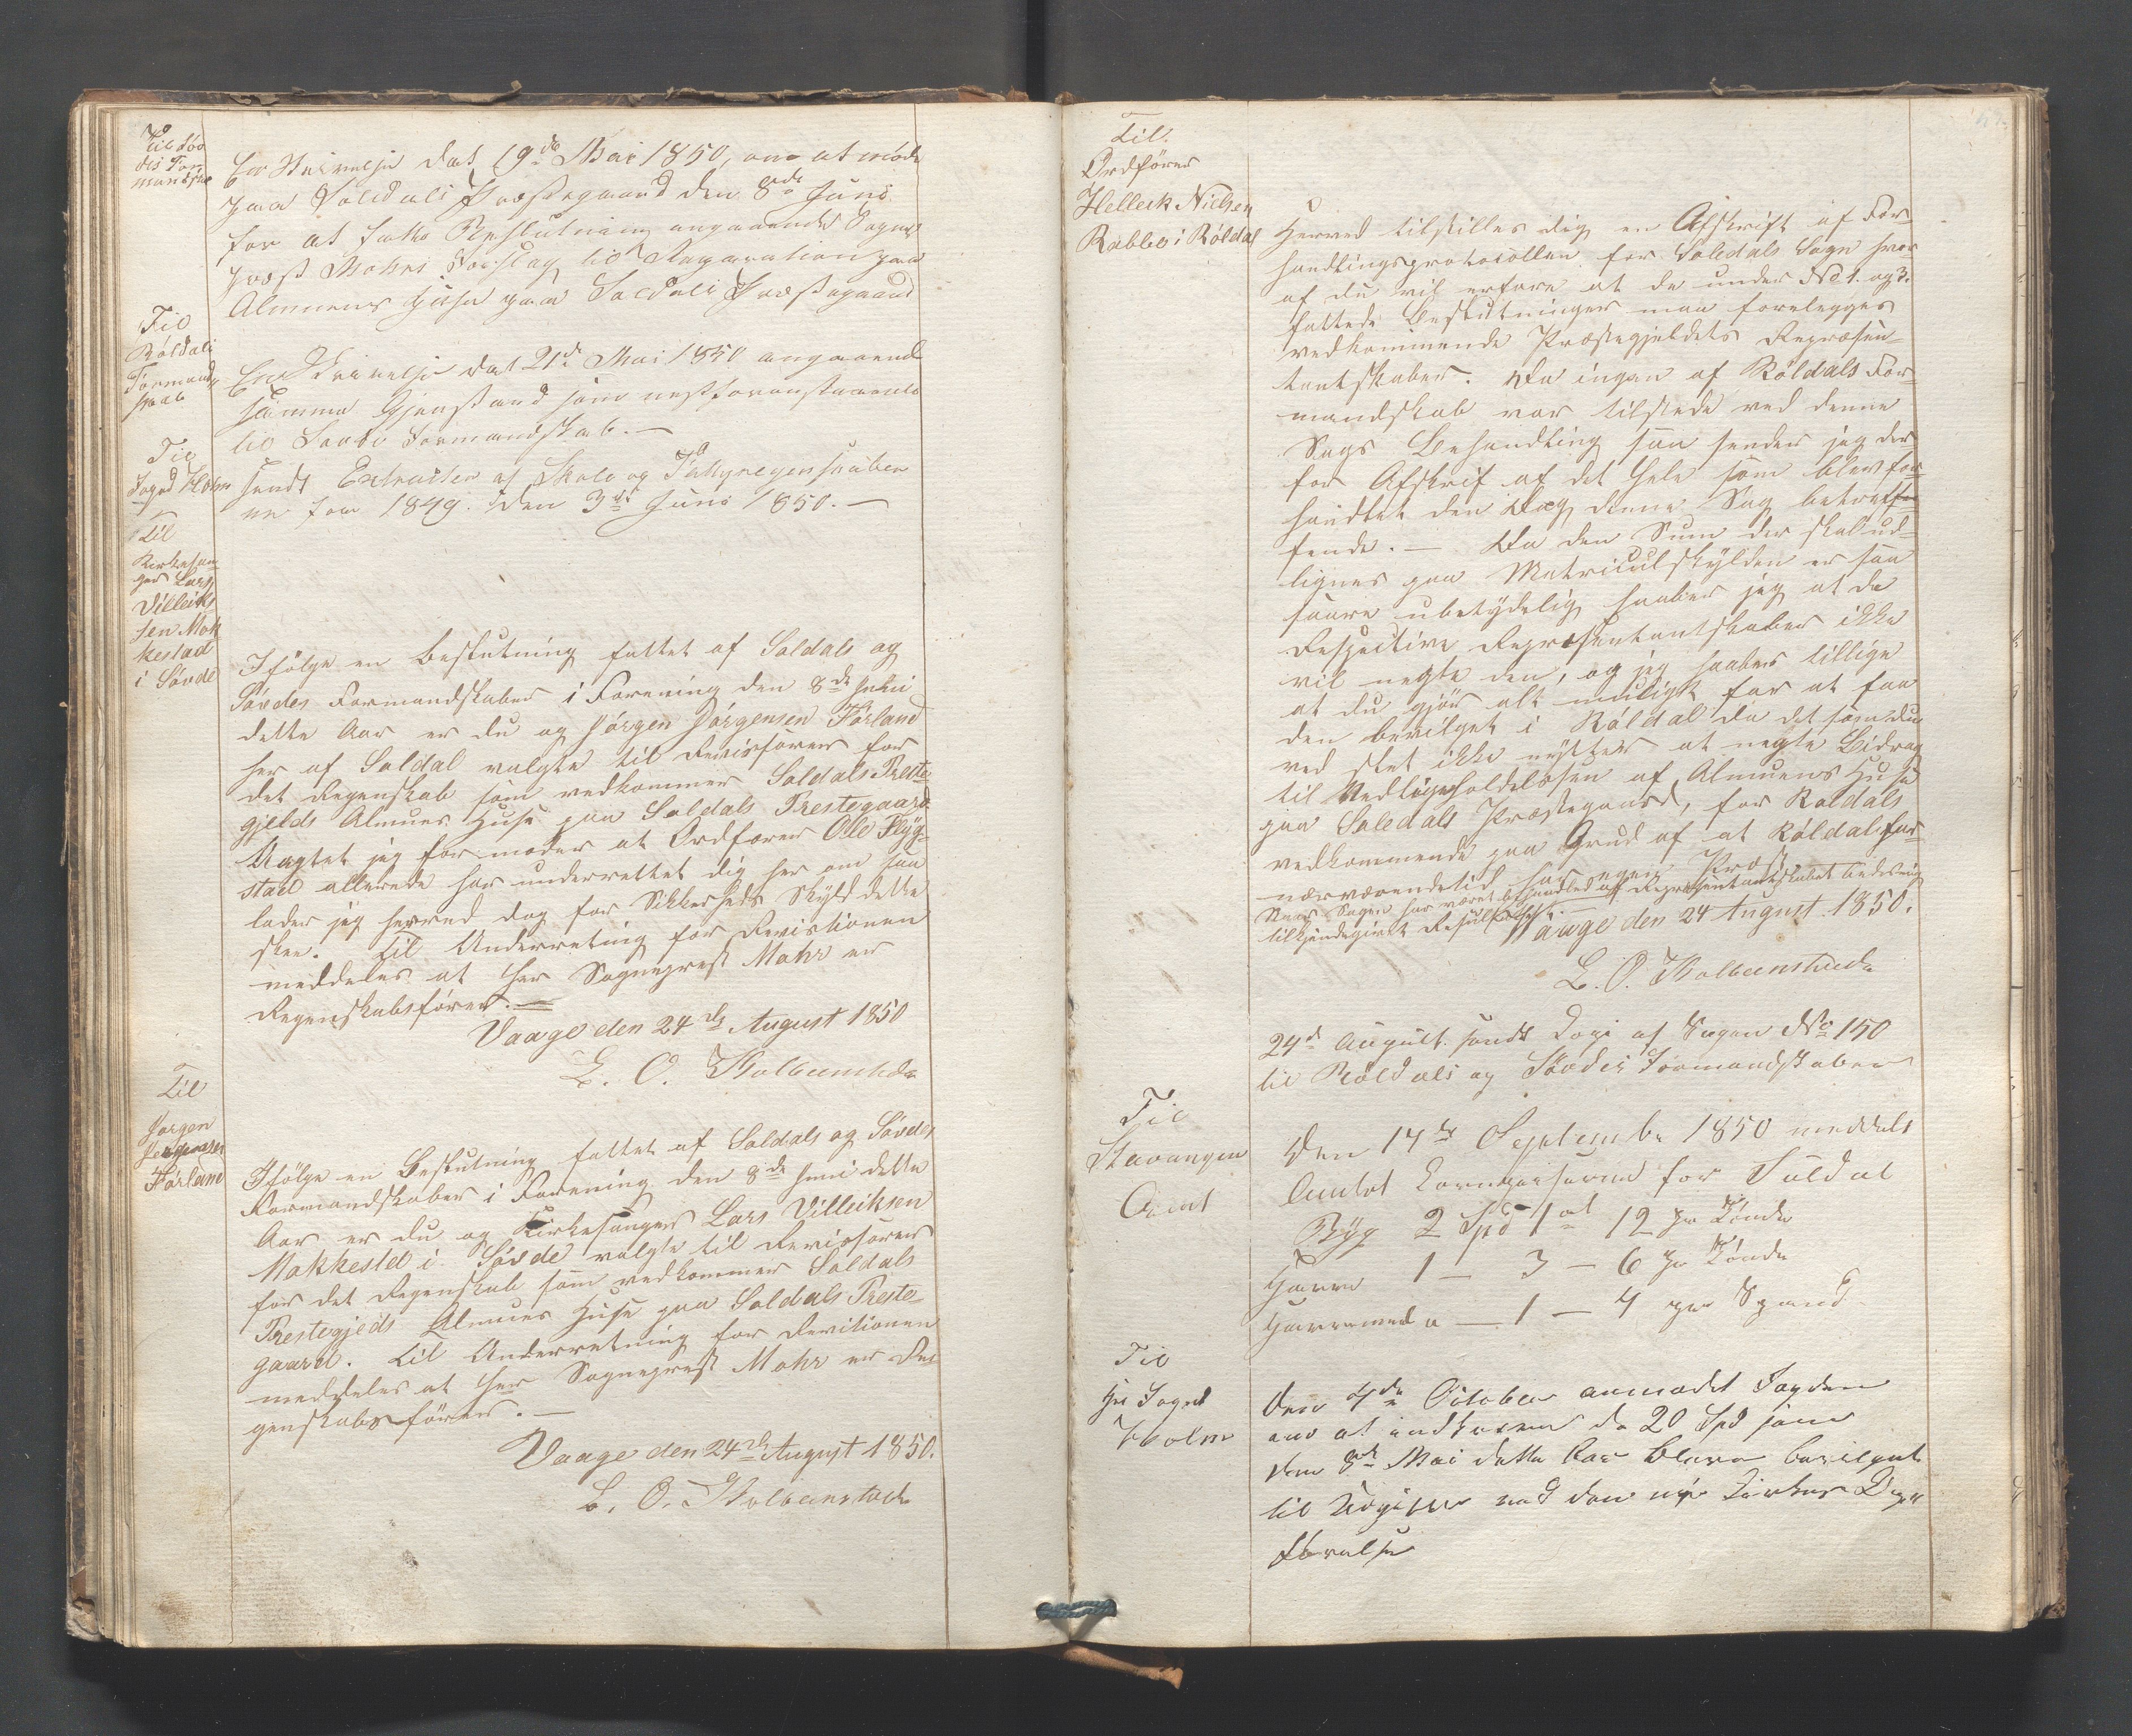 Til Søv
des For
mandskab
En Skrivelse dat 19de Mai 1850, om at møde
paa Soledals Præstegaard den 8de Juni
for at fatte Beslutning angaaende Sogne
præst Mohrs Forslag til Reparation paa
Almuens Huse paa Suldals Præstegaard
Til
Røldals
Formand
skab
En Skrivelse dat 21de Mai 1850 angaaende
samme Gjenstand som næstforanstaaende
til Søvde Formandskab. —
Til
Foged Holm
sendt Extracter af Skole og Fattigregenskaber
ne for 1849. den 3die Juni 1850. —
Til
Kirkesan
ger Lars
Villeiks
sen Mok
kestad
i Søvde
Ifølge en Beslutning fattet af Soldals og
Søvdes Formandskaber i Forening den 8de Juni
dette Aar er du og Jørgen Jørgensen Førland
her af Soldal valgte til Revissorer for
det Regenskab som vedkommer Soldals Preste
gjelds Almues Huse paa Soldals Prestegaard.
Uagtet jeg formoder at Ordfører Olle Flyg-
stad allerede har underrettet dig her om saa
lader jeg herved dog for Sikkerheds Skyld dette
skee. Til Underretning for Revistionen
meddeles at Her Sogneprest Mohr er
Regenskabsfører. —
Vaage den 24de August 1850
L. O. Kolbeinstvedt
Til
Jørgen
Jørgensen
Førland
Ifølge en Beslutning fattet af Soldals og Søvdes
Formandskaber i Forening den 8de Juni dette
Aar er du og Kirkesanger Lars Villeiksen
Mokkested i Søvde valgte til Revissorer
for det Regenskab som vedkommer Soldals
Prestegjeds Almues Huse paa Soldals Preste-
gaard. Til Underretning for Revitionen
meddeles at Her Sogneprest Mohr er Re-
genskabsfører. —
Vaage den 24de August 1850.
L. O. Kolbeinstvedt
Til.
Ordfører
Helleik Nielsen
Rabbe i Røldal
Herved tilstilles dig en Afskrift af For-
handlingsprotocollen for Soledals Sogn hvor-
af du vil erfare at de under No 1. og 3.
fattede Beslutninger maa forelegges
vedkommende Præstegjeldets Repræsen-
tantskaber. Da ingen af Røldals For-
mandskab var tilstede ved denne
Sags Behandling saa sender jeg der
for Afskrif af det Hele som blev for-
handlet den Dag denne Sag betræf-
fende. — Da den Sum der skal ud-
lignes paa Matriculskylden er saa
saare ubetydelig haaber jeg at de
Respective Repræsentantskaber ikke
vil negte den, og jeg haaber tillige
at du gjør alt muligt for at faa
den bevilget i Røldal da det som du
ved slet ikke nytter at negte Bidrag
til Vedligeholdelsen af Almuens Huse
paa Soledals Præstegaard, for Røldals
vedkommende paa Grud af at Røldal for
nærværendetid har egen Præst
Naar Sagen har været behandled af Repræsentantskabet bedes mig
tilkjendegivet Resultatet. Vaage den 24 August 1850.
L. O. Kolbeinstvedt
24de August. sendt Copi af Sagen No 150
til Røldals og Søvdes Formandskaber
Til
Stavanger
Amt
Den 14de September 1850 meddelt
Amtet Kornpriserne for Suldal
Byg 2 Spd 1 ort 12 pr Tønde
Havre 1 — 3 — 6 pr Tønde
Havremel a — 1 — 4 per Spand
Til
Hr Foged
Holm
Den 4de October anmodet Fogden
om at indkræve de 20 Spd som
den 8de Mai dette Aar bleve bevilget
til Udgifter ved den nye Kirkes